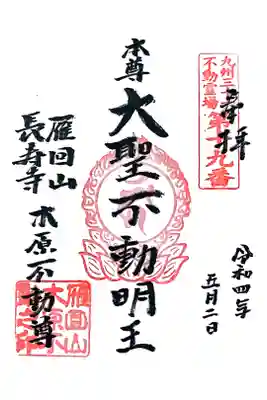 奉拝
九州三十六
不動霊場
第十九番
令和四年
五月二日
本尊
大聖不動明王
雁回山
長寿寺
木原不動尊
雁回山
木原不